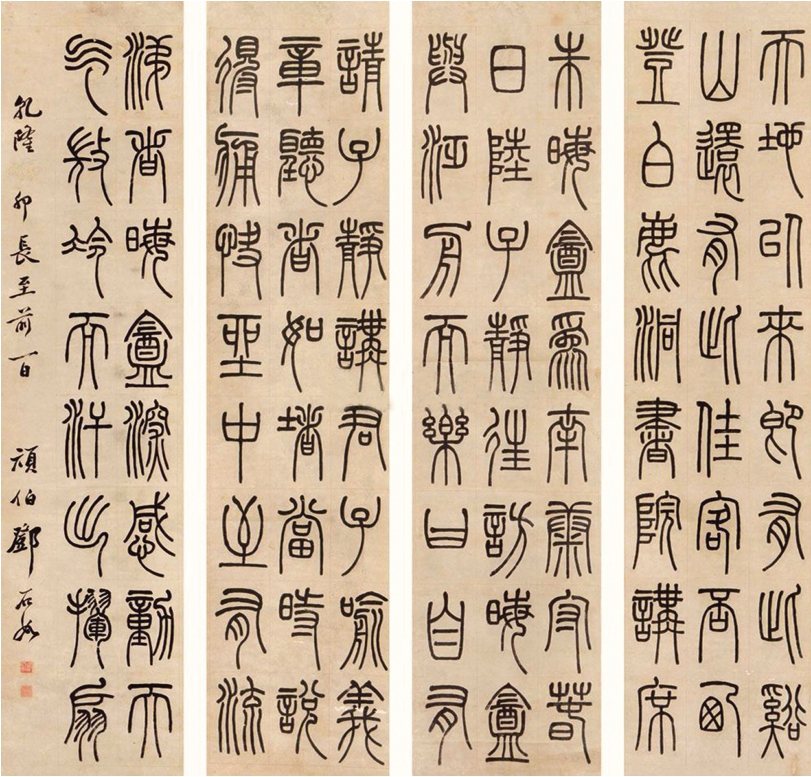 天地以來即有此谿
山還有此佳客否因
登白鹿洞書院講席
朱晦盦為南康守春
日陸子靜往訪晦盦
與汎舟而樂曰自有
請子靜講君子喻義
章聽者如堵當時說
得痛快坐中至有流
涕者晦盦深感動天
气微冷而汗出揮扇
乾隆 卯長至前一日 頑伯鄧石如